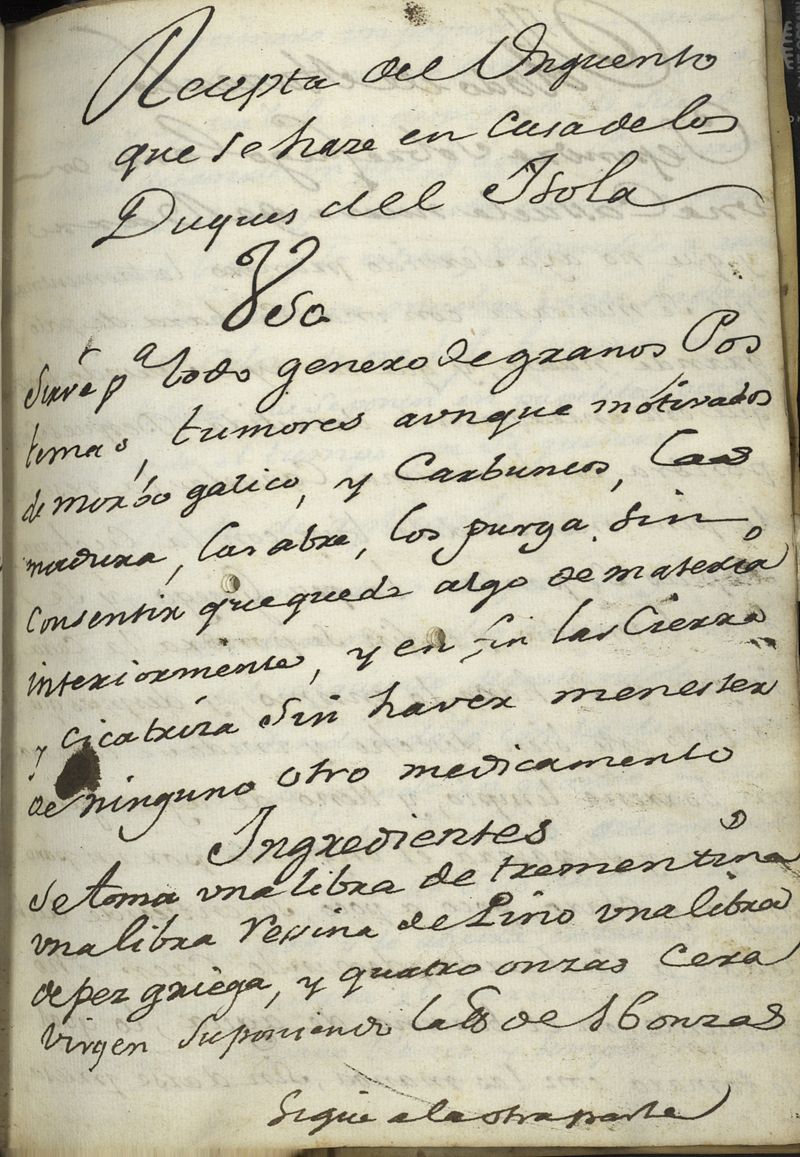 Recepta del Vnguento
que se haze en Casa de los
Duques del Isola
Vso
Sirve pa todo genero de granos Pos
temas, tumores avnque motivados
de morbo galico, y Carbuncos, las
madura, las abre, los purga, sin
Consentir que quede algo de materia
interiormente, y en fin las Cierra
y Cicatriza sin haver menester
de ninguno otro medicamento
Ingredientes
se toma vna libra de trementina
vna libra Resina de Pino vna libra
de pez griega, y quatro onzas Cera
virgen suponiendo la de 16 onzas
Sigue a la otra parte